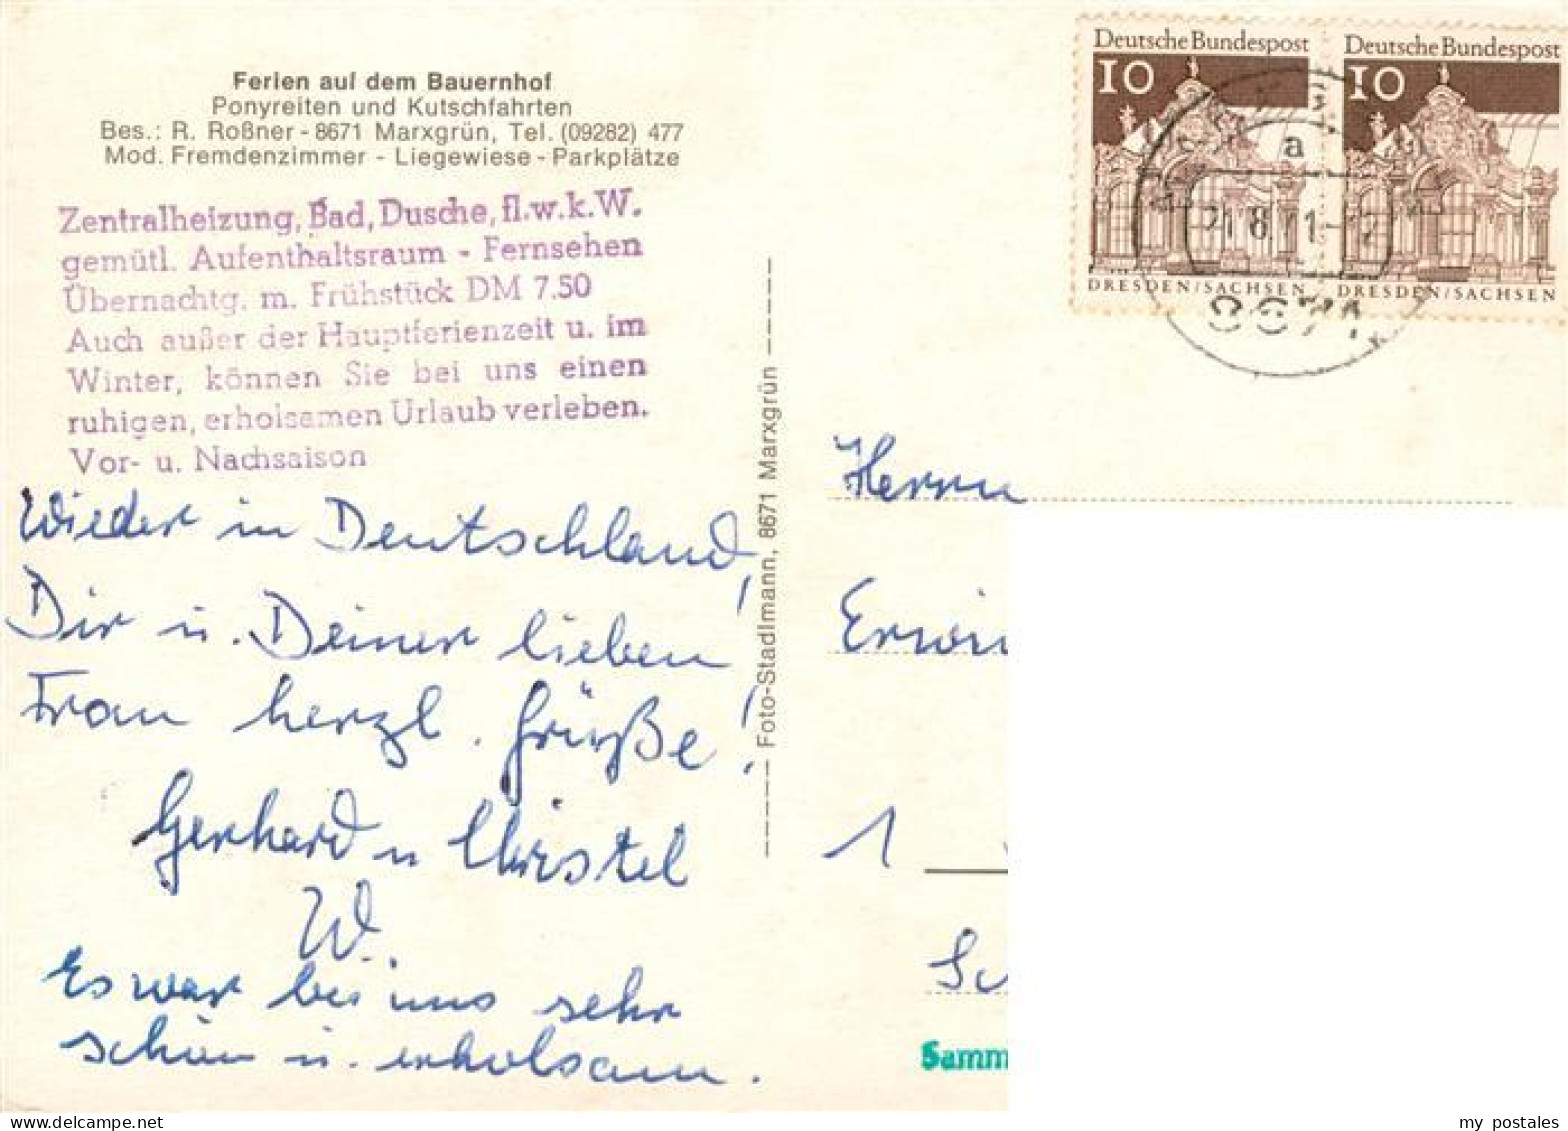 Ferien auf dem Bauernhof
Ponyreiten und Kutschfahrten
Bes.: R. Roßner - 8671 Marxgrün, Tel. (09282) 477
Mod. Fremdenzimmer - Liegewiese - Parkplätze
Zentralheizung, Bad, Dusche, fl.w.k.W.
gemütl. Aufenthaltsraum - Fernsehen
Übernachtg. m. Frühstück DM 7.50
Auch außer der Hauptferienzeit u. im
Winter, können Sie bei uns einen
ruhigen, erholsamen Urlaub verleben.
Vor- u. Nachsaison
Wieder in Deutschland,
Dir u. Deiner lieben
Frau herzl. Grüße!
Gerhard u Christel
W.
Es war bei uns sehr
schön u. erholsam.
Foto-Stadlmann, 8671 Marxgrün
Deutsche Bundespost
10
DRESDEN/SACHSEN
Deutsche Bundespost
10
DRESDEN/SACHSEN
a
21.8.71-12
8671
Herrn
Erwin
1
Sc
Samm
my postales